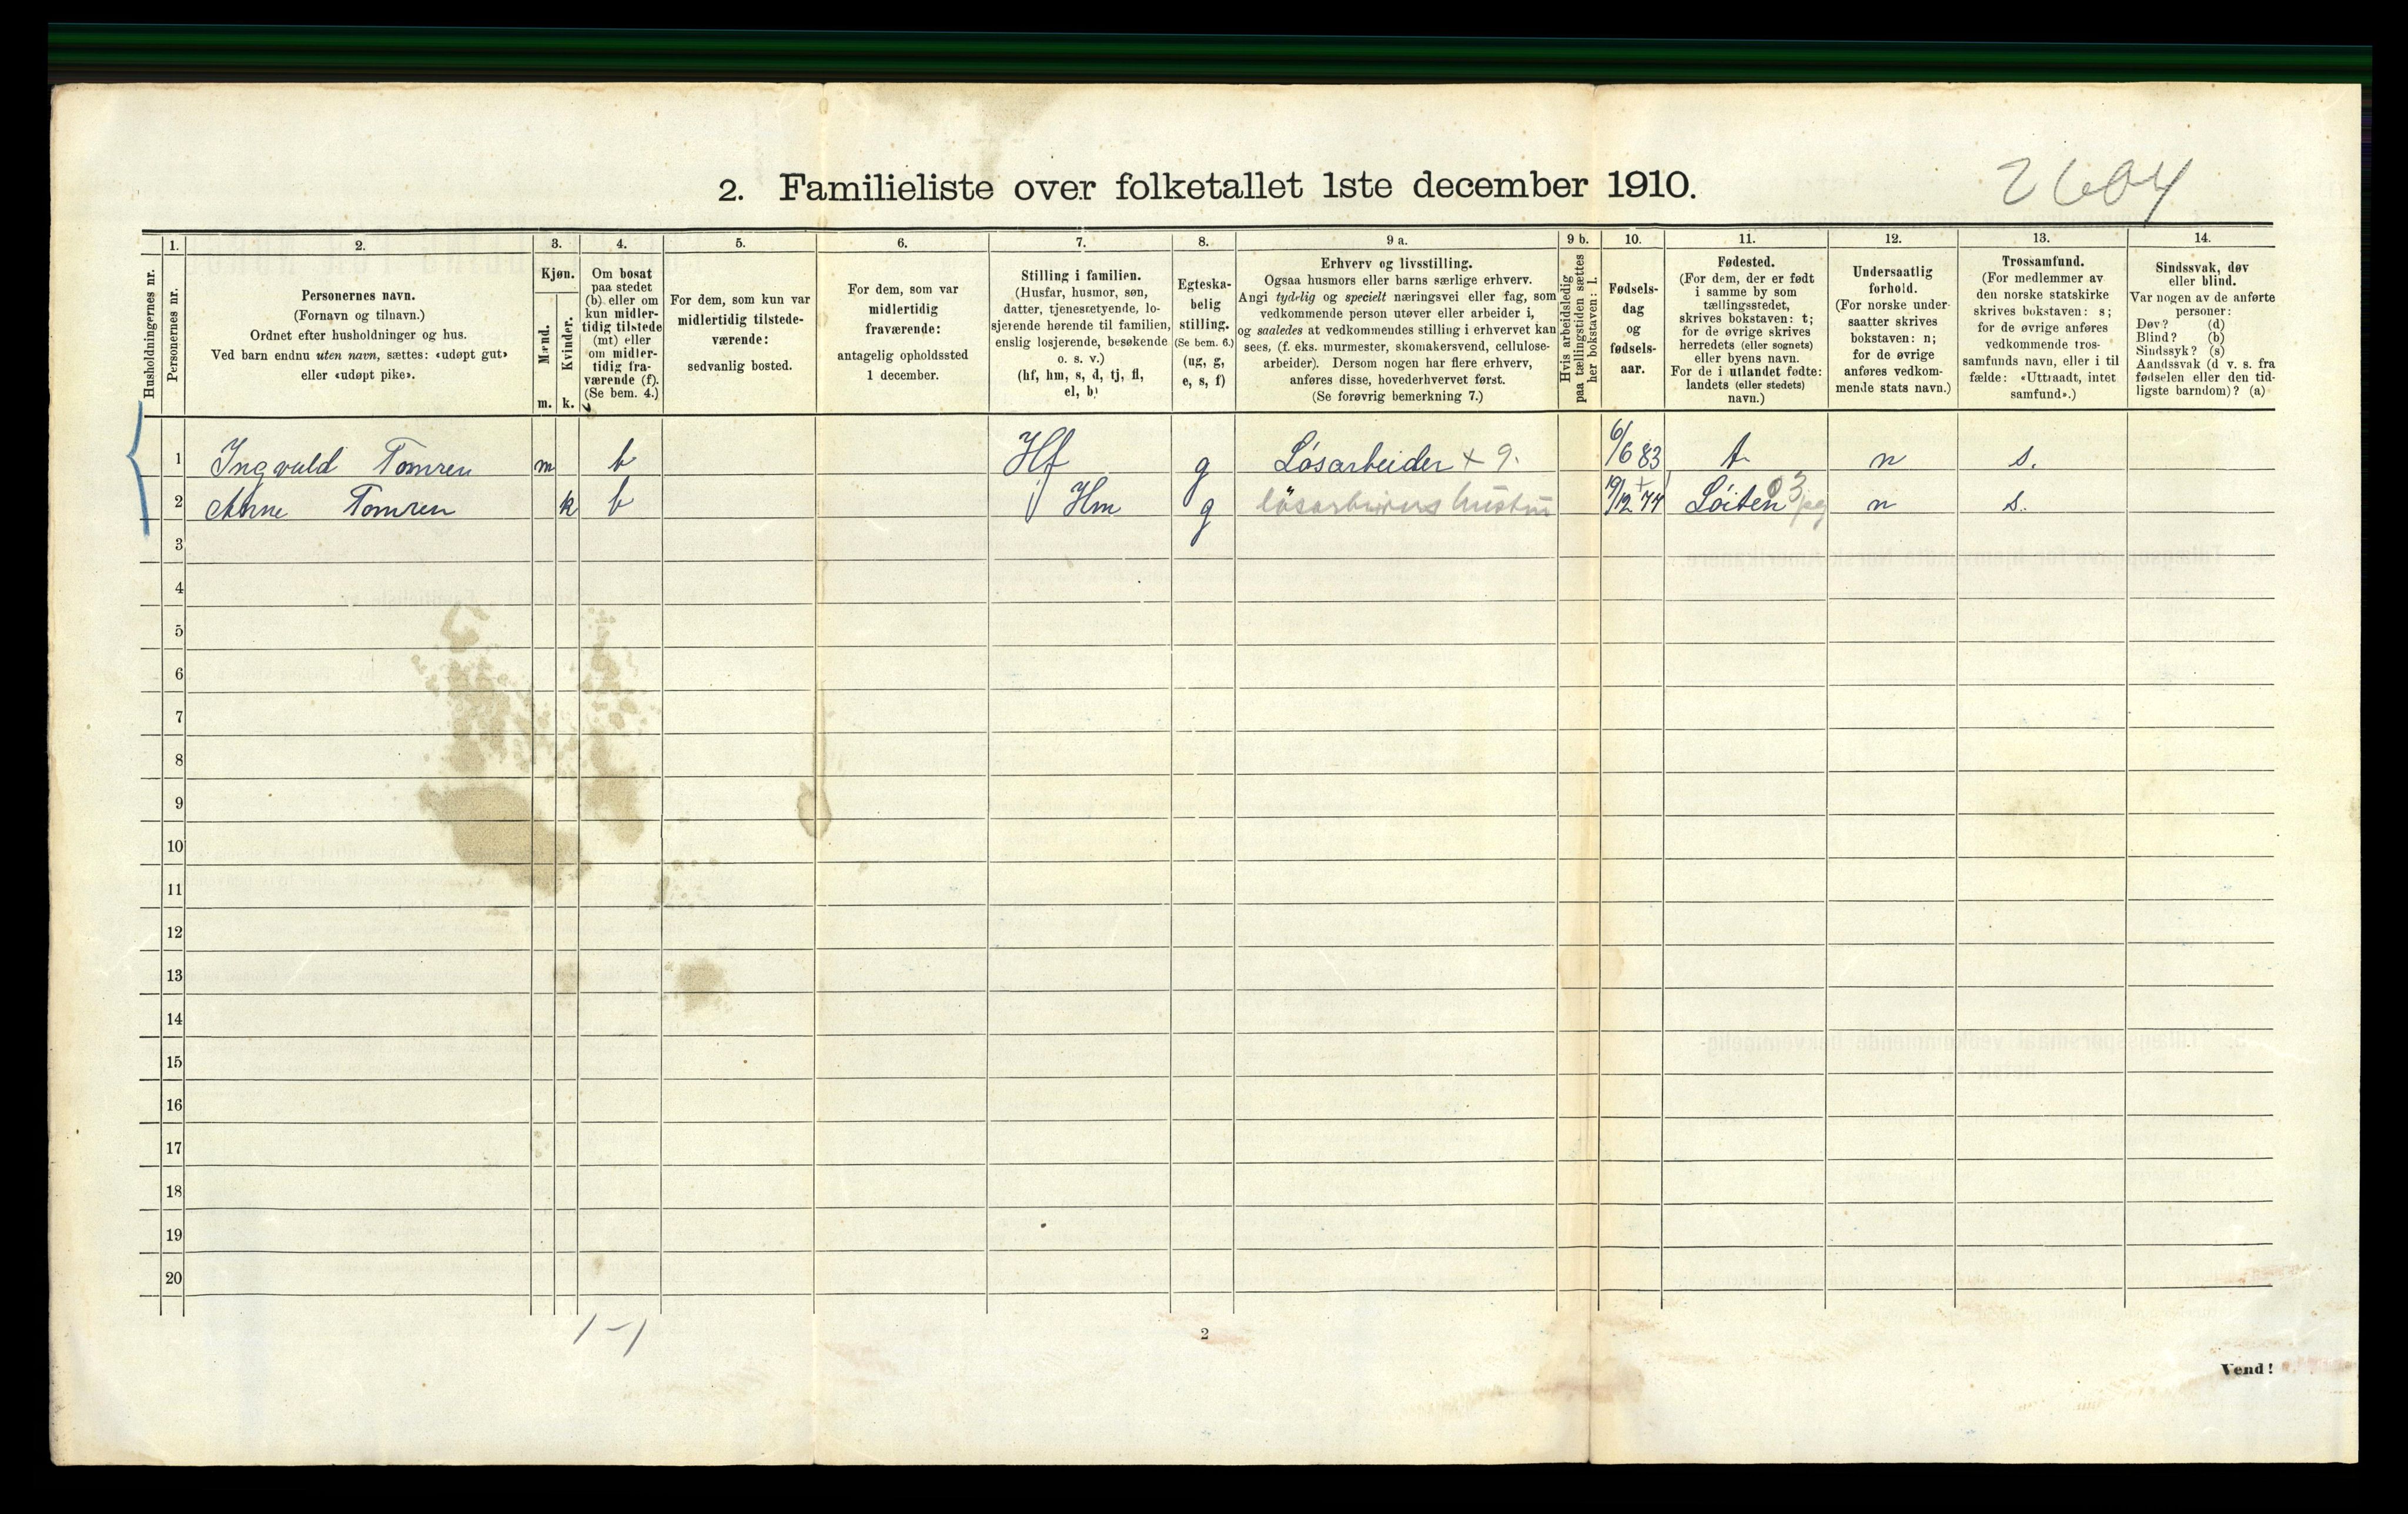 2604
2. Familieliste over folketallet 1ste december 1910.
Husholdningernes nr.
1.
Personernes nr.
2.
Personernes navn.
(Fornavn og tilnavn.)
Ordnet efter husholdninger og hus.
Ved barn endnu uten navn, sættes: «udøpt gut»
eller «udøpt pike».
3.
Kjøn.
Mænd.
Kvinder.
m.
k.
4.
Om bosat
paa stedet
(b) eller om
kun midler-
tidig tilstede
(mt) eller
om midler-
tidig fra-
værende (f).
(Se bem. 4.)
5.
For dem, som kun var
midlertidig tilstede-
værende:
sedvanlig bosted.
6.
For dem, som var
midlertidig
fraværende:
antagelig opholdssted
1 december.
7.
Stilling i familien.
(Husfar, husmor, søn,
datter, tjenestetyende, lo-
sjerende hørende til familien,
enslig losjerende, besøkende
o. s. v.)
(hf, hm, s, d, tj, fl,
el, b)
8.
Egteska-
belig
stilling.
(Se bem. 6.)
(ug, g,
e, s, f)
9 a.
Erhverv og livsstilling.
Ogsaa husmors eller barns særlige erhverv.
Angi tydelig og specielt næringsvei eller fag, som
vedkommende person utøver eller arbeider i,
og saaledes at vedkommendes stilling i erhvervet kan
sees, (f. eks. murmester, skomakersvend, cellulose-
arbeider). Dersom nogen har flere erhverv,
anføres disse, hovederhvervet først.
(Se forøvrig bemerkning 7.)
9 b.
Hvis arbeidsledig
paa tællingstiden sættes
her bokstaven: l.
10.
Fødsels-
dag
og
fødsels-
aar.
11.
Fødested.
(For dem, der er født
i samme by som
tællingsstedet,
skrives bokstaven: t;
for de øvrige skrives
herredets (eller sognets)
eller byens navn.
For de i utlandet fødte:
landets (eller stedets)
navn.)
12.
Undersaatlig
forhold.
(For norske under-
saatter skrives
bokstaven: n;
for de øvrige
anføres vedkom-
mende stats navn.)
13.
Trossamfund.
(For medlemmer av
den norske statskirke
skrives bokstaven: s;
for de øvrige anføres
vedkommende tros-
samfunds navn, eller i til
fælde: «Uttraadt, intet
samfund».)
14.
Sindssvak, døv
eller blind.
Var nogen av de anførte
personer:
Døv? (d)
Blind? (b)
Sindssyk? (s)
Aandssvak (d. v. s. fra
fødselen eller den tid-
ligste barndom)? (a)
1 Ingvald Tomren m b Hf g Løsarbeider + 9. 6/6 83 t n s.
2 Anne Tomren k b Hm g løsarbeiders hustru 19/12 74 Løiten 03 n s.
3 g
4
5
6
7
8
9
10
11
12
13
14
15
16
17
18
19
20
1-1
2
Vend!